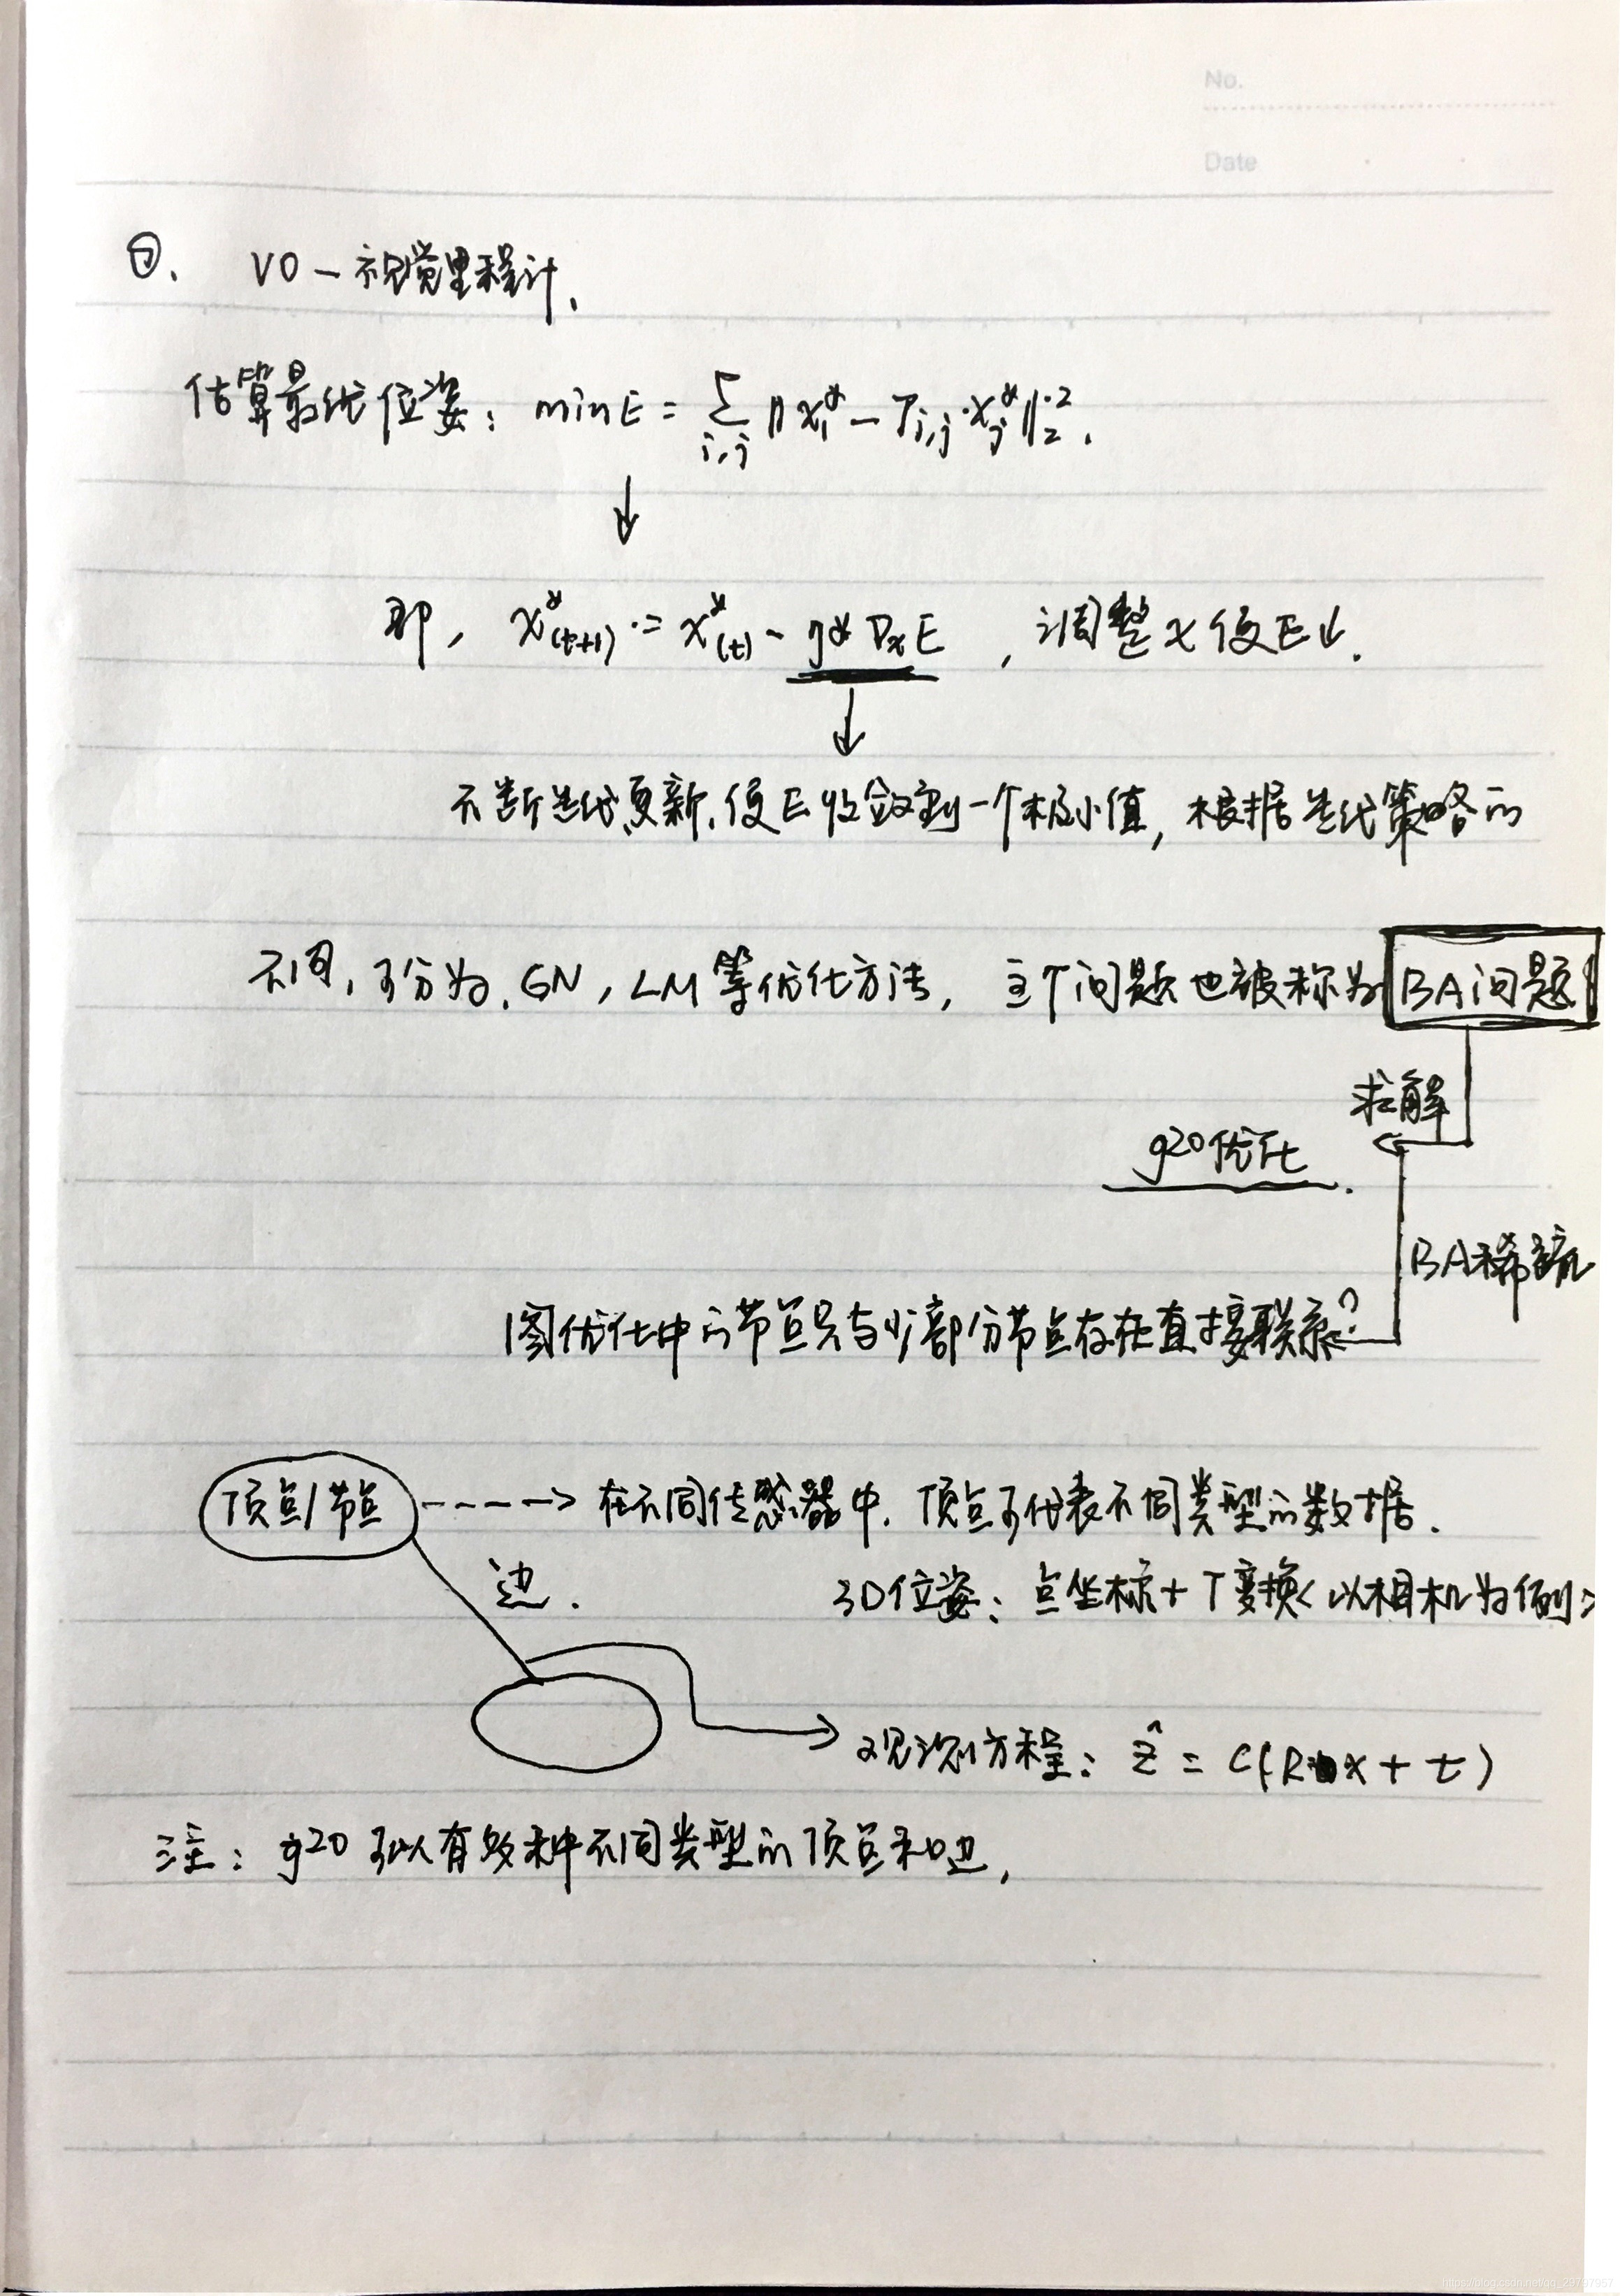 No.
Date
②. VO — 视觉里程计.
估算最优位姿: min E = ∑ ‖x_i^* − T_{i,j}·x_j^*‖_2^2.
i,j
↓
即, x^*_{(t+1)} = x^*_{(t)} - g* D_x E , 调整x使E↓.
↓
不断迭代更新,使E收敛到一个极小值, 根据迭代策略的
不同, 可分为. GN, LM等优化方法, 这个问题也被称为 BA问题
求解
g2o优化.
BA稀疏
图优化中的节点只与小部分节点存在直接联系?
顶点/节点 ----> 在不同传感器中. 顶点可代表不同类型的数据.
边. 3D位姿: 点坐标 + T变换<以相机为例>
观测方程: ẑ = C(R x + t)
注: g2o 可以有多种不同类型的顶点和边,